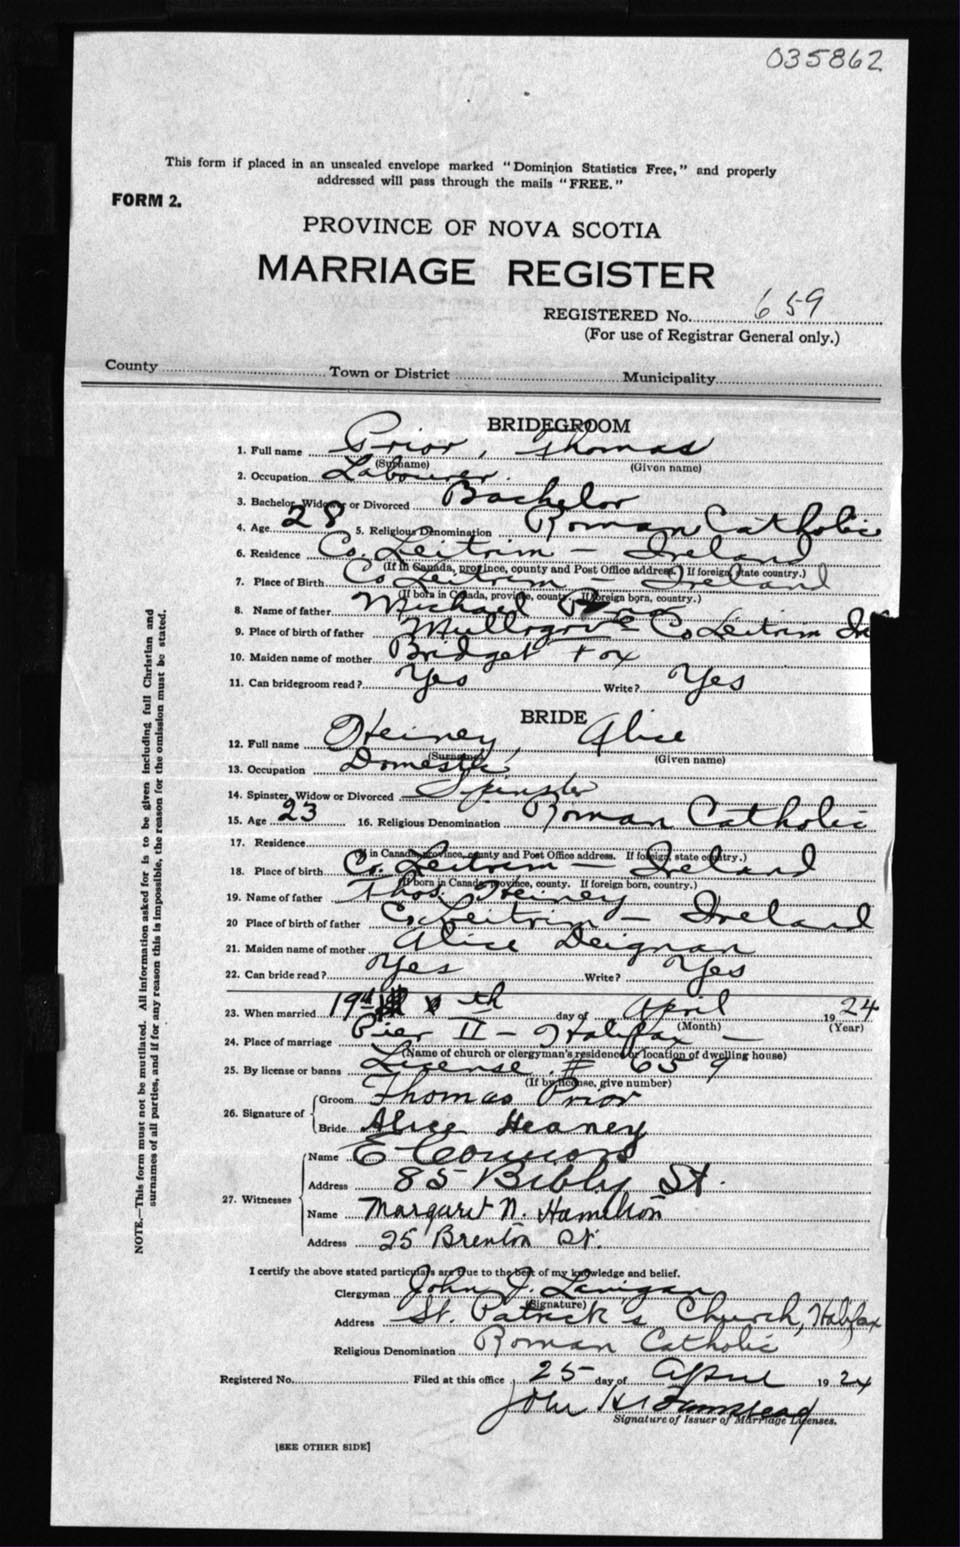 035862
This form if placed in an unsealed envelope marked "Dominion Statistics Free," and properly
addressed will pass through the mails "FREE."
FORM 2.
PROVINCE OF NOVA SCOTIA
MARRIAGE REGISTER
REGISTERED No. 659
(For use of Registrar General only.)
County Town or District Municipality
BRIDEGROOM
1. Full name Prior, Thomas
(Surname) (Given name)
2. Occupation Labourer
3. Bachelor, Widower or Divorced Bachelor
4. Age 28 5. Religious Denomination Roman Catholic
6. Residence Co. Leitrim – Ireland
(If in Canada, province, county and Post Office address.) If foreign, state country.)
7. Place of Birth Co Leitrim – Ireland
(If born in Canada, province, county. If foreign born, country.)
8. Name of father Michael
9. Place of birth of father Co Leitrim
10. Maiden name of mother Bridget Fox
11. Can bridegroom read? Yes Write? Yes
BRIDE
12. Full name Heiney, Alice
(Surname) (Given name)
13. Occupation Domestic
14. Spinster, Widow or Divorced Spinster
15. Age 23 16. Religious Denomination Roman Catholic
17. Residence
(If in Canada, province, county and Post Office address. If foreign, state country.)
18. Place of birth Co. Leitrim Ireland
(If born in Canada, province, county. If foreign born, country.)
19. Name of father Thos. Heiney
20 Place of birth of father Co. Leitrim – Ireland
21. Maiden name of mother Alice Deignan
22. Can bride read? Yes Write? Yes
23. When married 19th day of April 1924
(Month) (Year)
24. Place of marriage Pier II – Halifax –
(Name of church or clergyman's residence or location of dwelling house)
25. By license or banns License # 659
(If by license, give number)
26. Signature of Groom Thomas Prior
Bride Alice Heaney
27. Witnesses Name E
Address 85 Bibly St.
Name Margaret N. Hamilton
Address 25 Brenton St.
I certify the above stated particulars are true to the best of my knowledge and belief.
Clergyman John J. Lanigan
(Signature)
Address St. Patrick's Church, Halifax
Religious Denomination Roman Catholic
Registered No. Filed at this office 25 day of April 1924
John H
Signature of Issuer of Marriage Licenses.
[SEE OTHER SIDE]
NOTE.—This form must not be mutilated. All information asked for is to be given including full Christian and
surnames of all parties, and if for any reason this is impossible, the reason for the omission must be stated.